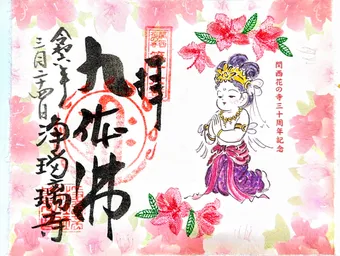 関西花の寺三十周年記念
拝
九体佛
令和六年
三月二十四日
浄瑠璃寺